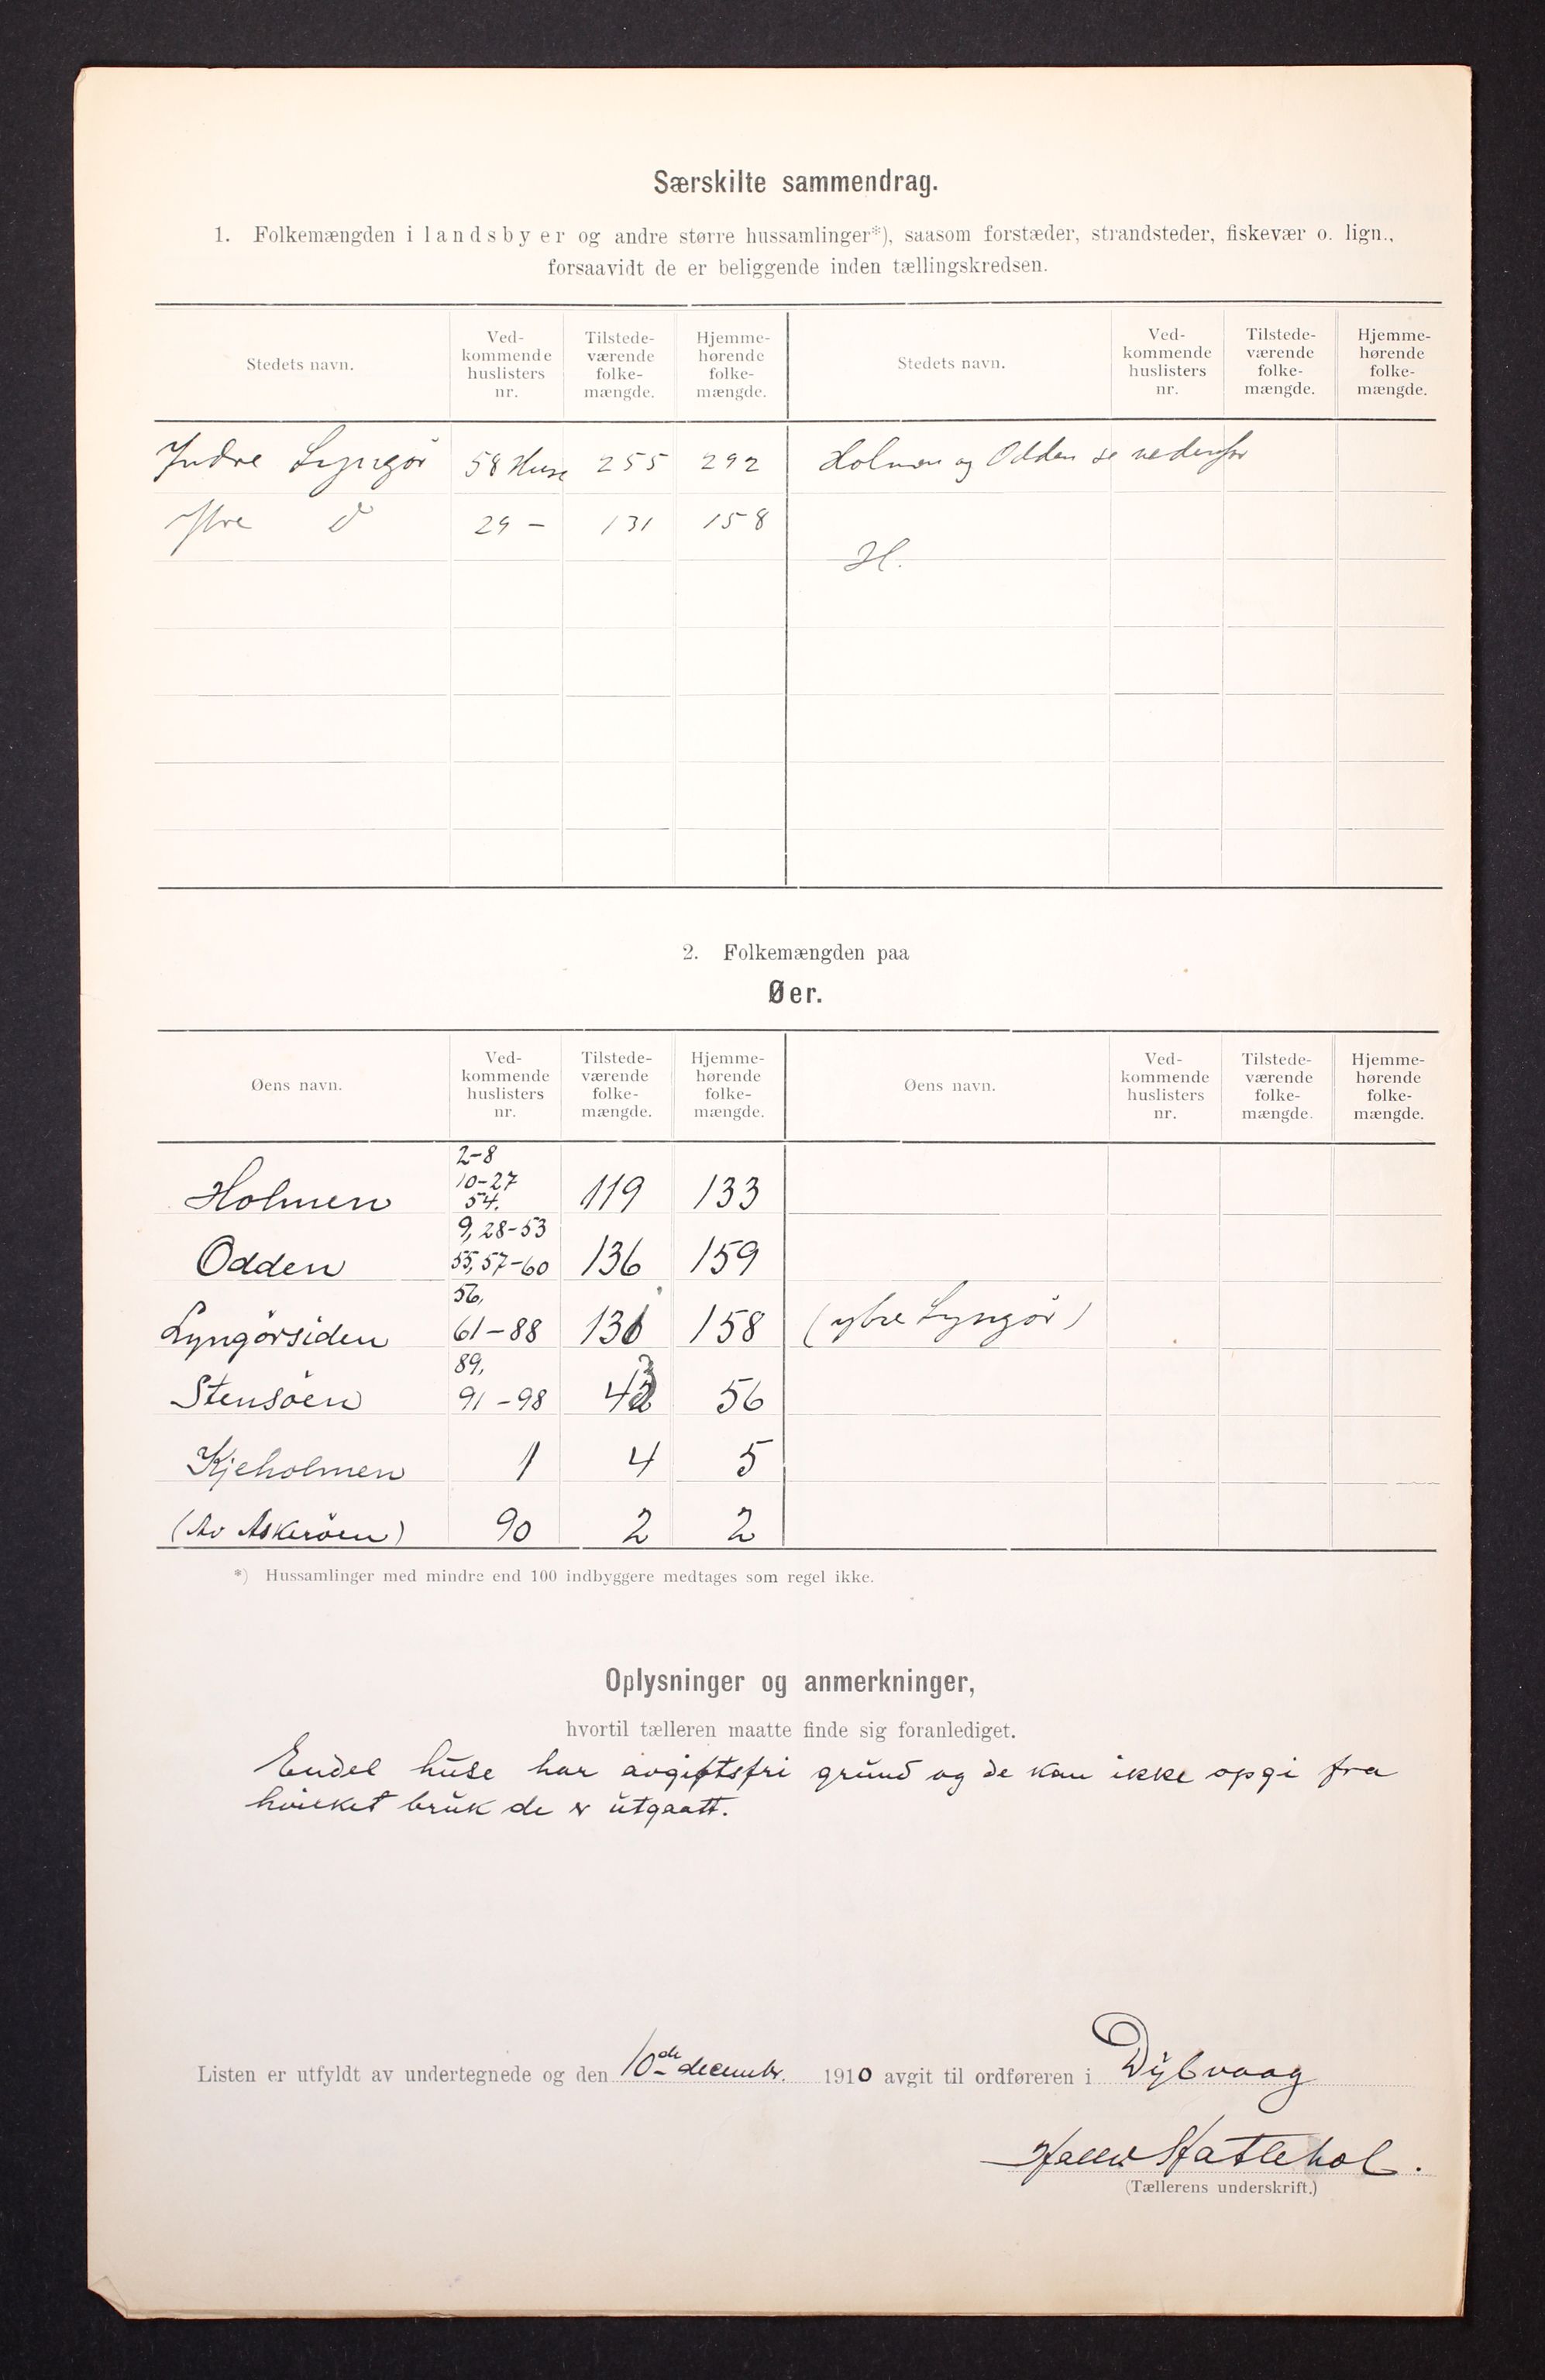 Særskilte sammendrag.
1. Folkemængden i landsbyer og andre større hussamlinger*), saasom forstæder, strandsteder, fiskevær o. lign.,
forsaavidt de er beliggende inden tællingskredsen.
Stedets navn. Ved-kommende huslisters nr. Tilstede-værende folke-mængde. Hjemme-hørende folke-mængde. Stedets navn. Ved-kommende huslisters nr. Tilstede-værende folke-mængde. Hjemme-hørende folke-mængde.
Indre Lyngør 58 Huse 255 292 Holmen og Odden se nedenfor
Ytre d 29 - 131 158
H.
2. Folkemængden paa
Øer.
Øens navn. Ved-kommende huslisters nr. Tilstede-værende folke-mængde. Hjemme-hørende folke-mængde. Øens navn. Ved-kommende huslisters nr. Tilstede-værende folke-mængde. Hjemme-hørende folke-mængde.
2-8
10-27
Holmen 54. 119 133
9, 28-53
Odden 55, 57-60 136 159
56,
Lyngörsiden 61-88 131 158 (ytre Lyngør)
89,
Stensöen 91-98 43 56
Kjeholmen 1 4 5
(Av Askeröen) 90 2 2
*) Hussamlinger med mindre end 100 indbyggere medtages som regel ikke.
Oplysninger og anmerkninger,
hvortil tælleren maatte finde sig foranlediget.
Endel huse har avgiftsfri grund og de kan ikke opgi fra
hvilket bruk de er utgaatt.
Listen er utfyldt av undertegnede og den 10de decembr. 1910 avgit til ordføreren i Dybvaag
Hattehol.
(Tællerens underskrift.)